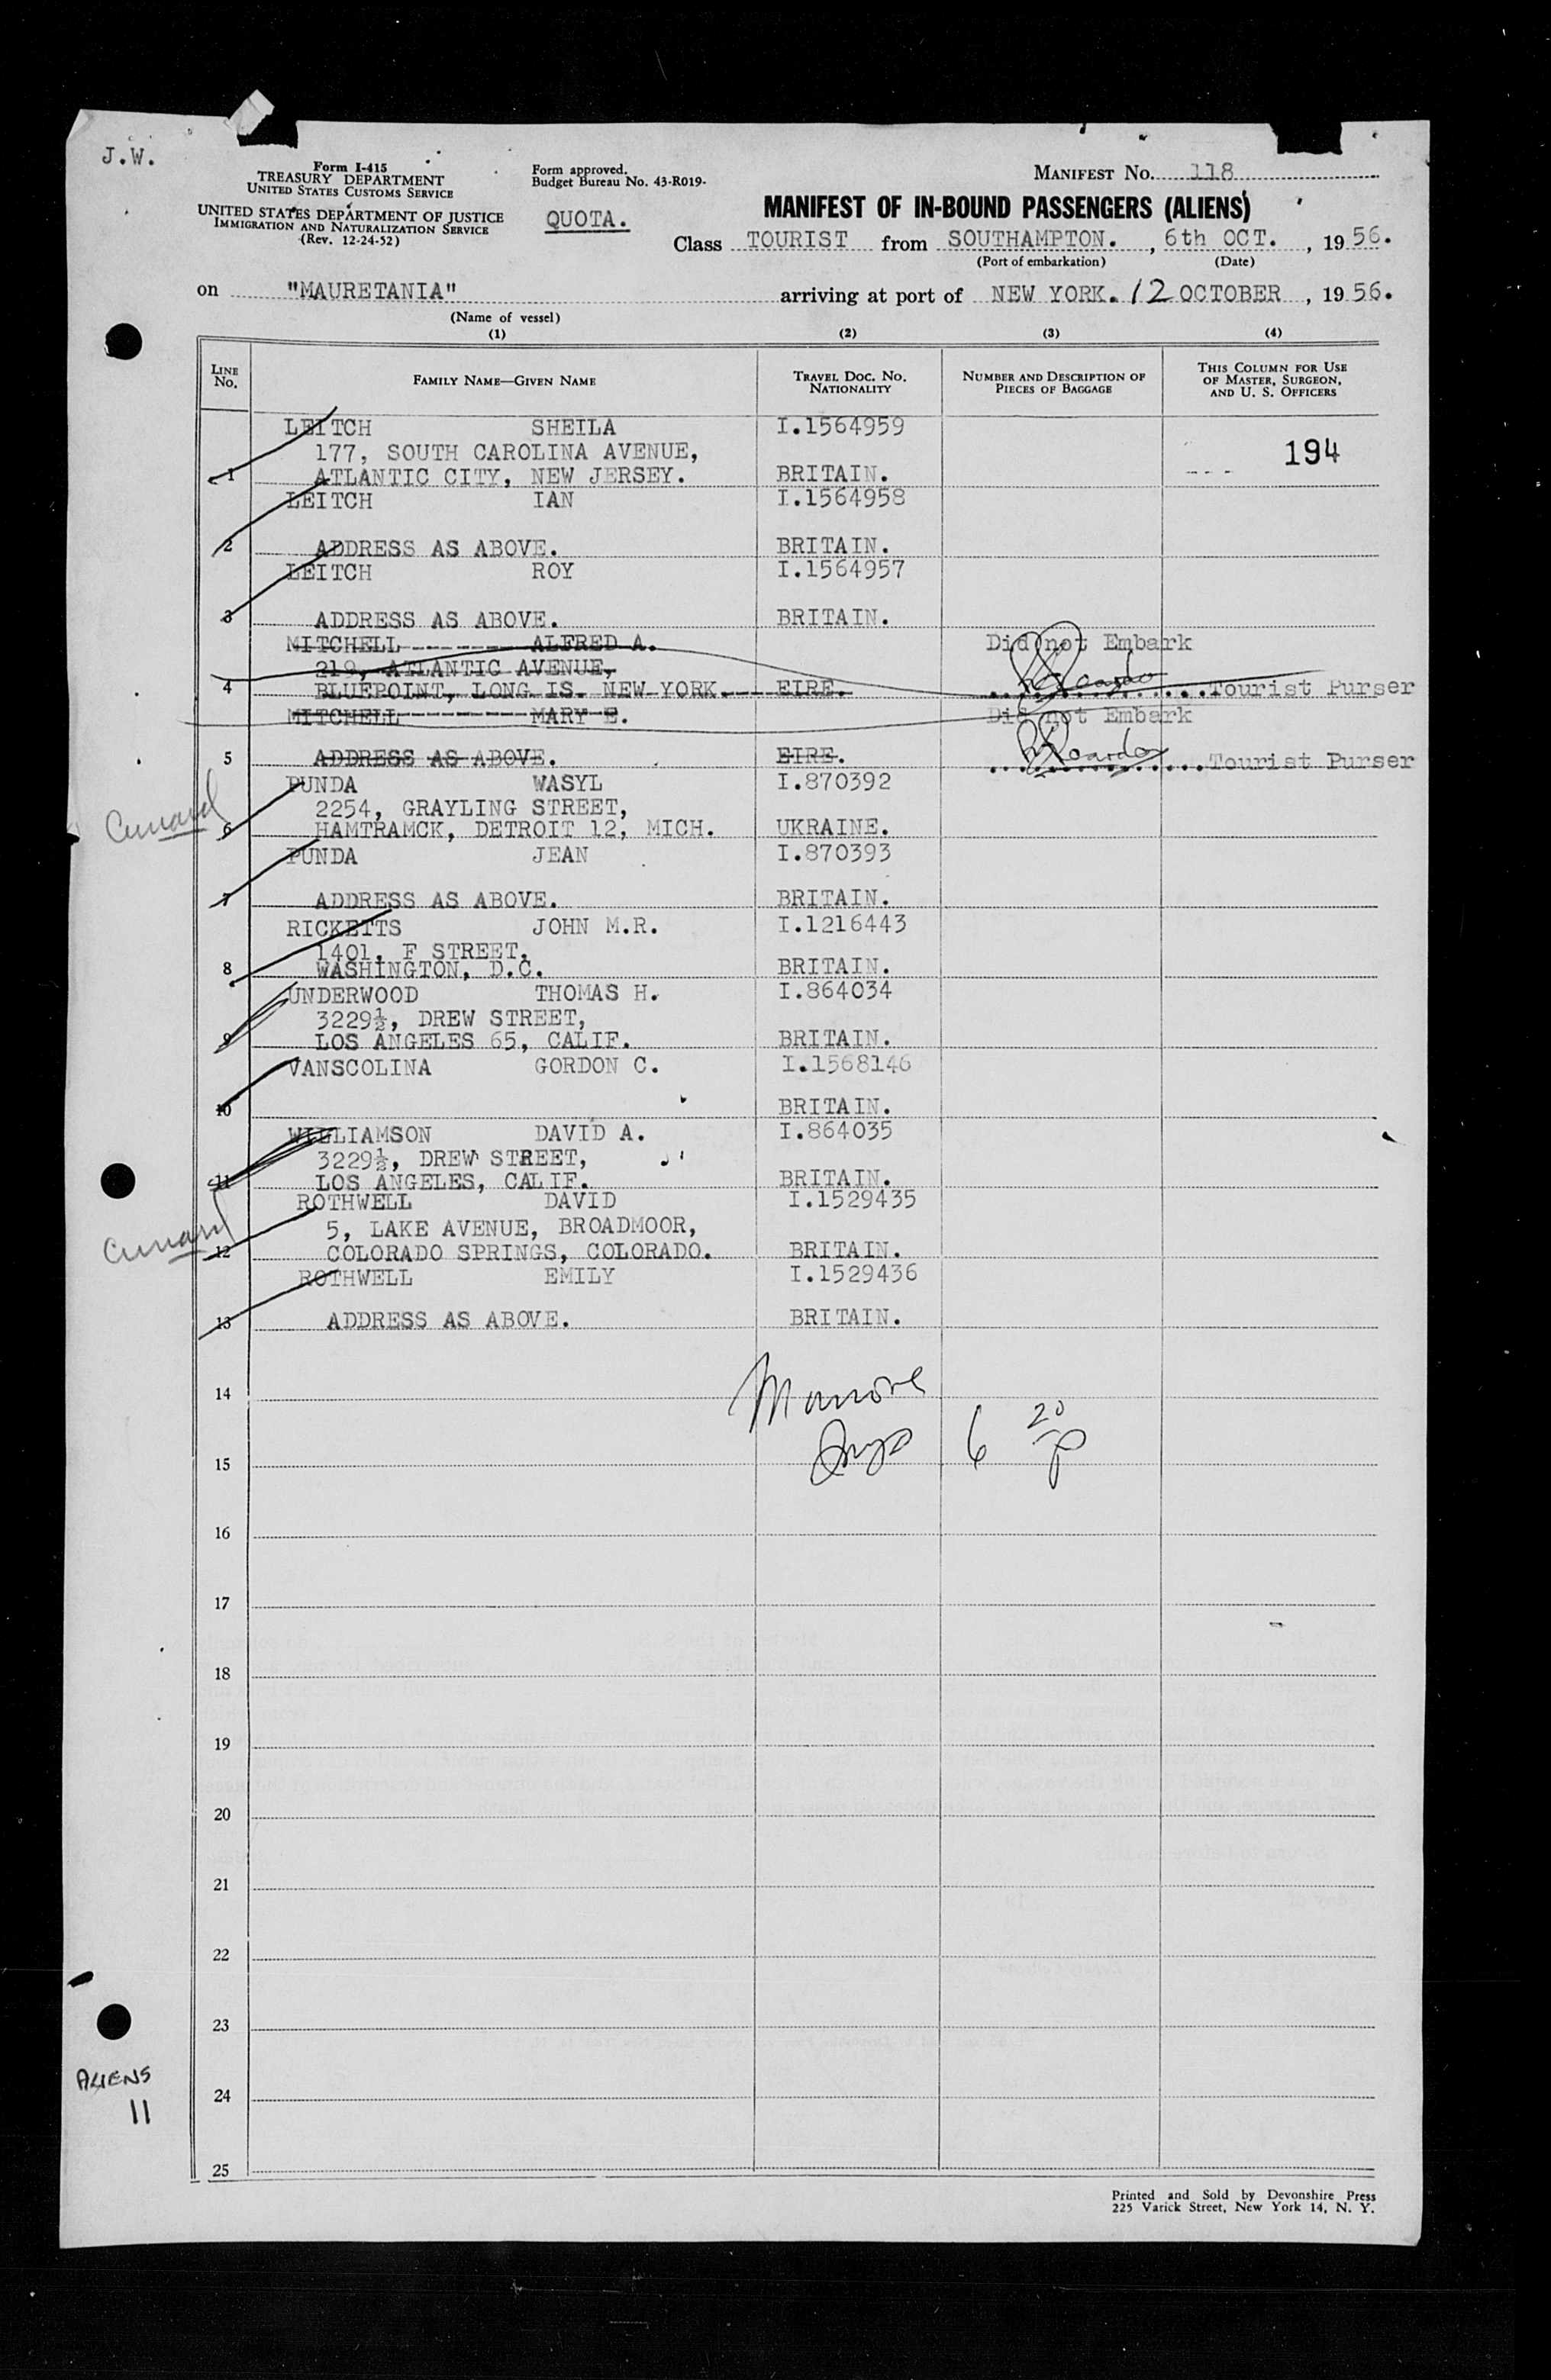 J.W.
Form I-415
TREASURY DEPARTMENT
UNITED STATES CUSTOMS SERVICE
UNITED STATES DEPARTMENT OF JUSTICE
IMMIGRATION AND NATURALIZATION SERVICE
(Rev. 12-24-52)
Form approved.
Budget Bureau No. 43-R019-
QUOTA.
MANIFEST No. 118
MANIFEST OF IN-BOUND PASSENGERS (ALIENS)
Class TOURIST from SOUTHAMPTON. , 6th OCT. , 19 56.
(Port of embarkation) (Date)
on "MAURETANIA" arriving at port of NEW YORK. 12 OCTOBER , 19 56.
(Name of vessel)
(1) (2) (3) (4)
LINE No. FAMILY NAME—GIVEN NAME TRAVEL DOC. NO. NATIONALITY NUMBER AND DESCRIPTION OF PIECES OF BAGGAGE THIS COLUMN FOR USE OF MASTER, SURGEON, AND U. S. OFFICERS
LEITCH SHEILA I.1564959
177, SOUTH CAROLINA AVENUE, 194
1 ATLANTIC CITY, NEW JERSEY. BRITAIN.
LEITCH IAN I.1564958
2 ADDRESS AS ABOVE. BRITAIN.
LEITCH ROY I.1564957
3 ADDRESS AS ABOVE. BRITAIN.
MITCHELL ALFRED A. Did not Embark
219, ATLANTIC AVENUE,
4 BLUEPOINT, LONG IS. NEW YORK. EIRE. Tourist Purser
MITCHELL MARY E. Did not Embark
5 ADDRESS AS ABOVE. EIRE. Tourist Purser
PUNDA WASYL I.870392
2254, GRAYLING STREET,
Cunard 6 HAMTRAMCK, DETROIT 12, MICH. UKRAINE.
PUNDA JEAN I.870393
7 ADDRESS AS ABOVE. BRITAIN.
RICKETTS JOHN M.R. I.1216443
1401, F STREET,
8 WASHINGTON, D.C. BRITAIN.
UNDERWOOD THOMAS H. I.864034
3229½, DREW STREET,
9 LOS ANGELES 65, CALIF. BRITAIN.
VANSCOLINA GORDON C. I.1568146
10 BRITAIN.
WILLIAMSON DAVID A. I.864035
3229½, DREW STREET,
11 LOS ANGELES, CALIF. BRITAIN.
ROTHWELL DAVID I.1529435
5, LAKE AVENUE, BROADMOOR,
Cunard 12 COLORADO SPRINGS, COLORADO. BRITAIN.
ROTHWELL EMILY I.1529436
13 ADDRESS AS ABOVE. BRITAIN.
14
15 6 20
16
17
18
19
20
21
22
23
24
25
ALIENS
11
Printed and Sold by Devonshire Press
225 Varick Street, New York 14, N. Y.